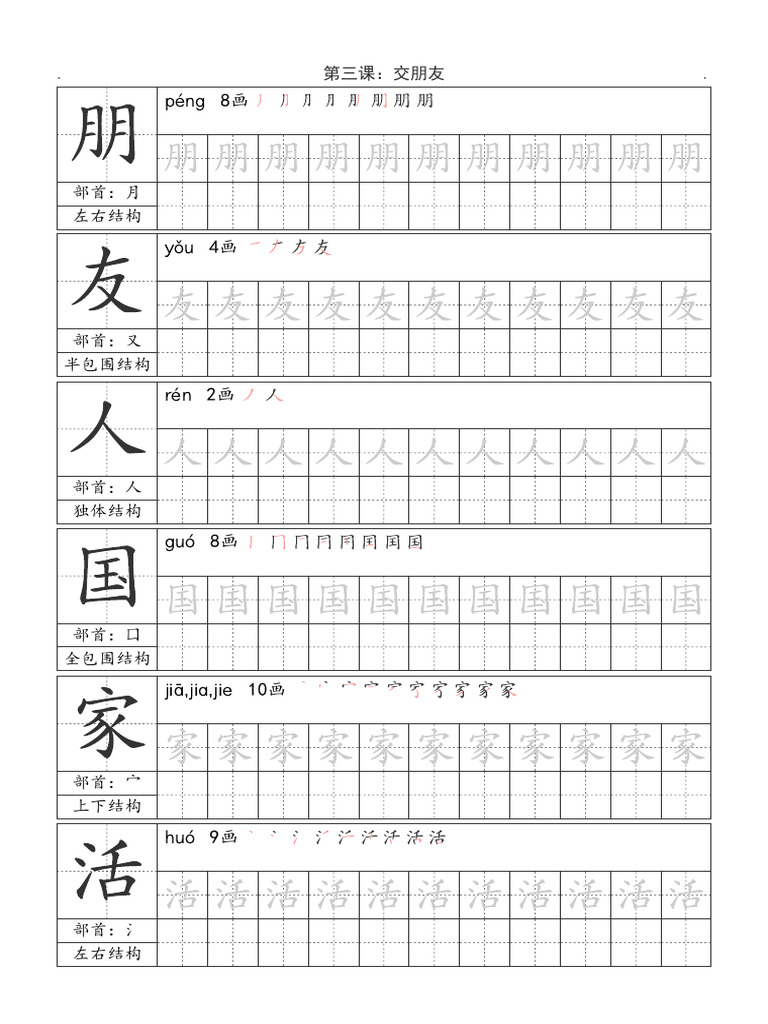 第三课：交朋友
朋
péng 8画 丿 ⺆ 月 月 刖 朋 朋 朋
朋 朋 朋 朋 朋 朋 朋 朋 朋 朋 朋
部首：月
左右结构
友
yǒu 4画 一 ナ 方 友
友 友 友 友 友 友 友 友 友 友 友
部首：又
半包围结构
人
rén 2画 丿 人
人 人 人 人 人 人 人 人 人 人 人
部首：人
独体结构
国
guó 8画 丨 冂 冂 冃 冃 国 国 国
国 国 国 国 国 国 国 国 国 国 国
部首：口
全包围结构
家
jiā,jia,jie 10画 家
家 家 家 家 家 家 家 家 家 家 家
部首：宀
上下结构
活
huó 9画 丶 氵 活 活
活 活 活 活 活 活 活 活 活 活 活
部首：氵
左右结构